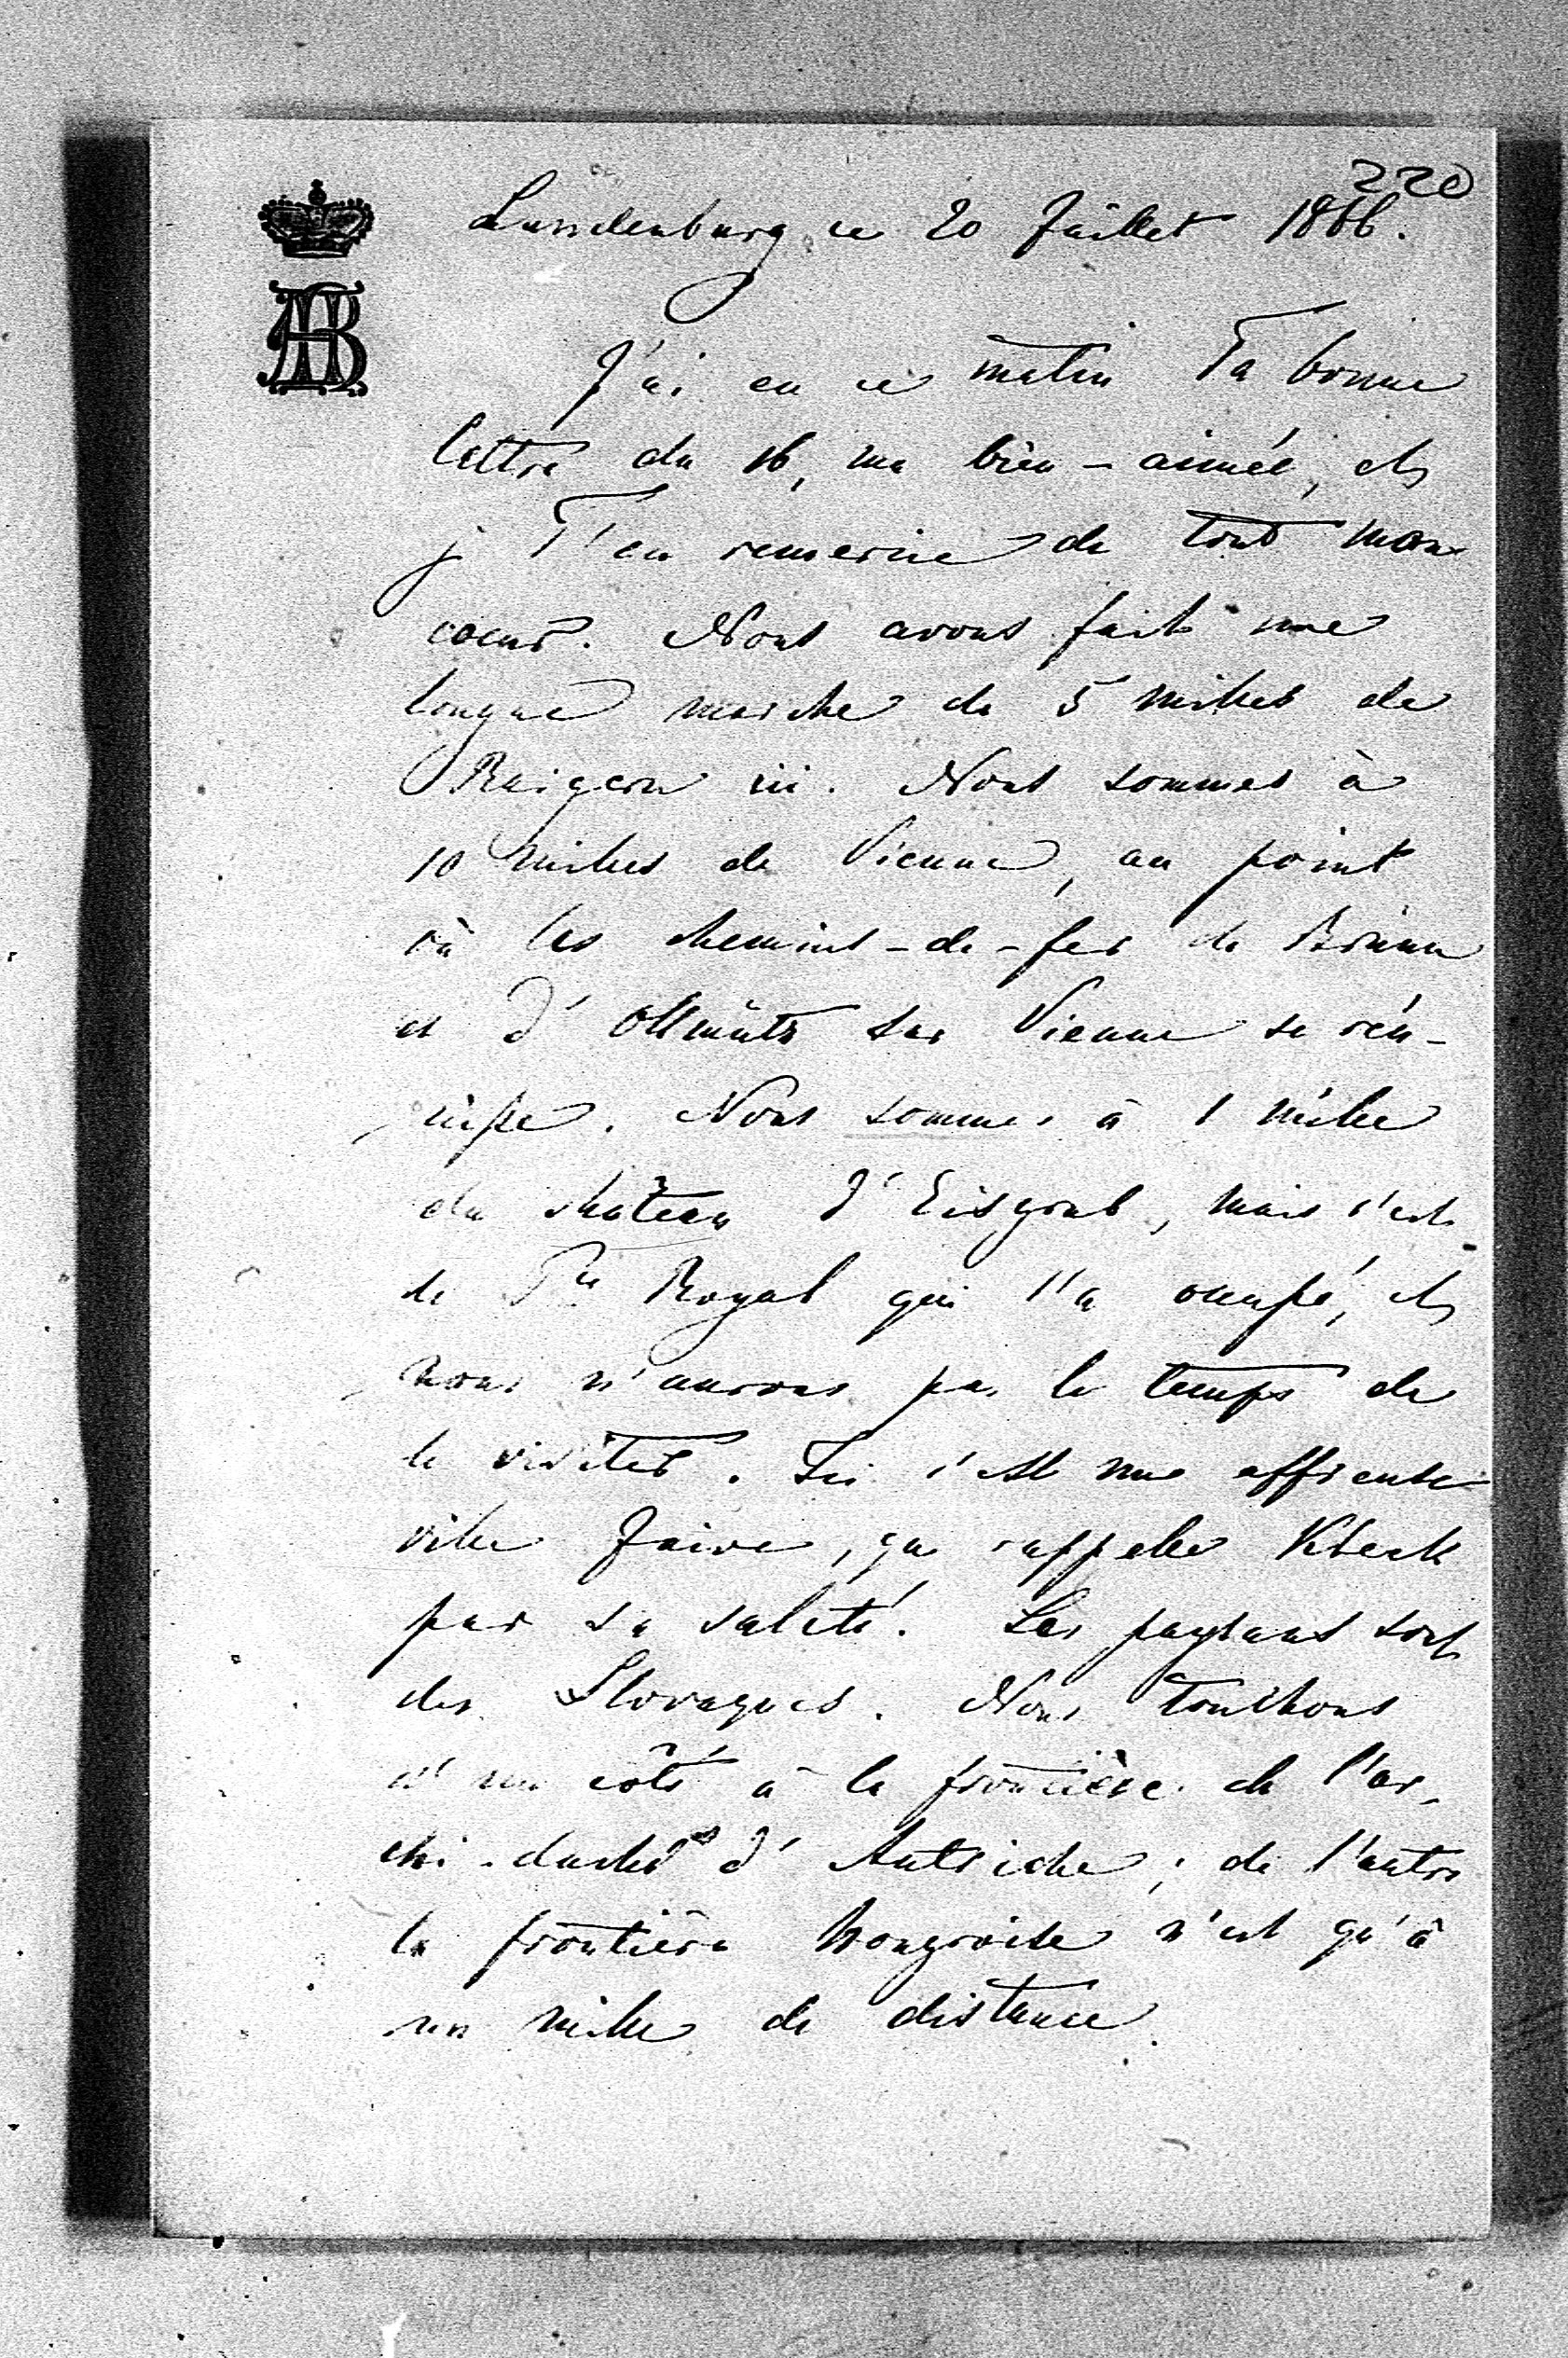 220
Lundenburg ce 20 Juillet 1866.
J'ai eu ce matin Ta bonne
lettre du 16, ma bien-aimée, et
je T'en remercie de tout mon
coeur. Nous avons fait une
longue marche de 5 milles de
Raigern ici. Nous sommes à
10 milles de Vienne, au point
où les chemins-de-fer de Brünn
et d'Ollmütz sur Vienne se réu-
nisse. Nous sommes à 1 mille
du château d'Eisgrub, mais c'est
le Pce Royal qui l'a occupé, et
nous n'aurons pas le temps de
le visiter. Ici c'est une affreuse
ville Juive, qui rappelle Kleck
par sa saleté. Les paysans sont
des Slovaques. Nous touchons
d'un côté à la frontière de l'ar-
chi-duché d'Autriche; de l'autre
la frontière hongroise n'est qu'à
un mille de distance.